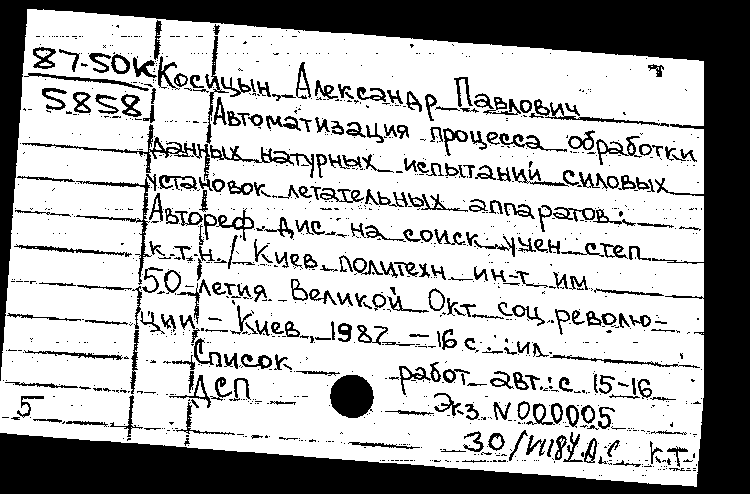 87-50К
5858
Косицын, Александр Павлович
Автоматизация процесса обработки
данных натурных испытаний силовых
установок летательных аппаратов:
Автореф. дис. на соиск. учен. степ.
к.т.н. / Киев. политехн. ин-т им.
50-летия Великой Окт. соц. револю-
ции - Киев, 1987 - 16 с.: ил.
Список работ авт.: с. 15-16
ДСП Экз. N 000005
5
30/VII 87 Д.С. к.т.